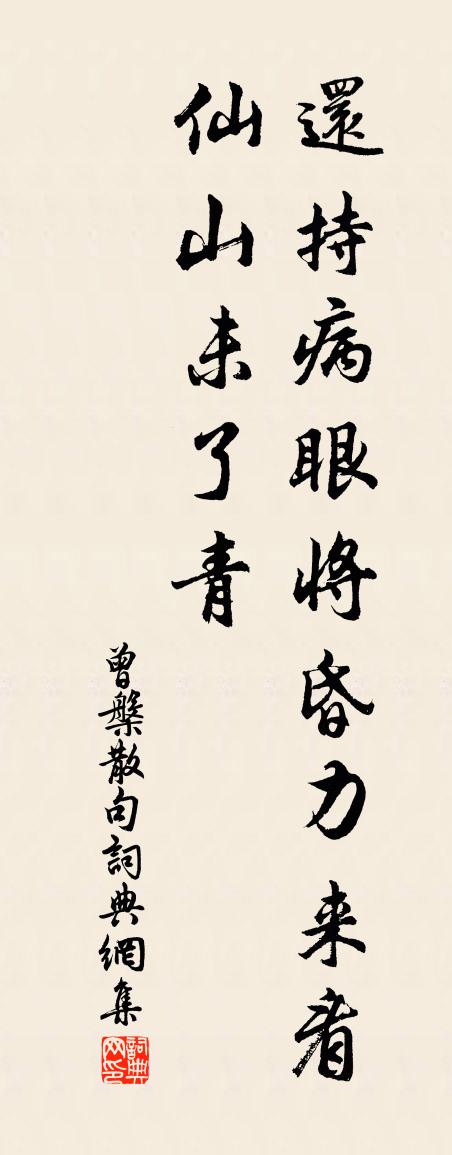 還持病眼將昏力来看
仙山未了青
曾槃散句詞典網集
詞典
网印